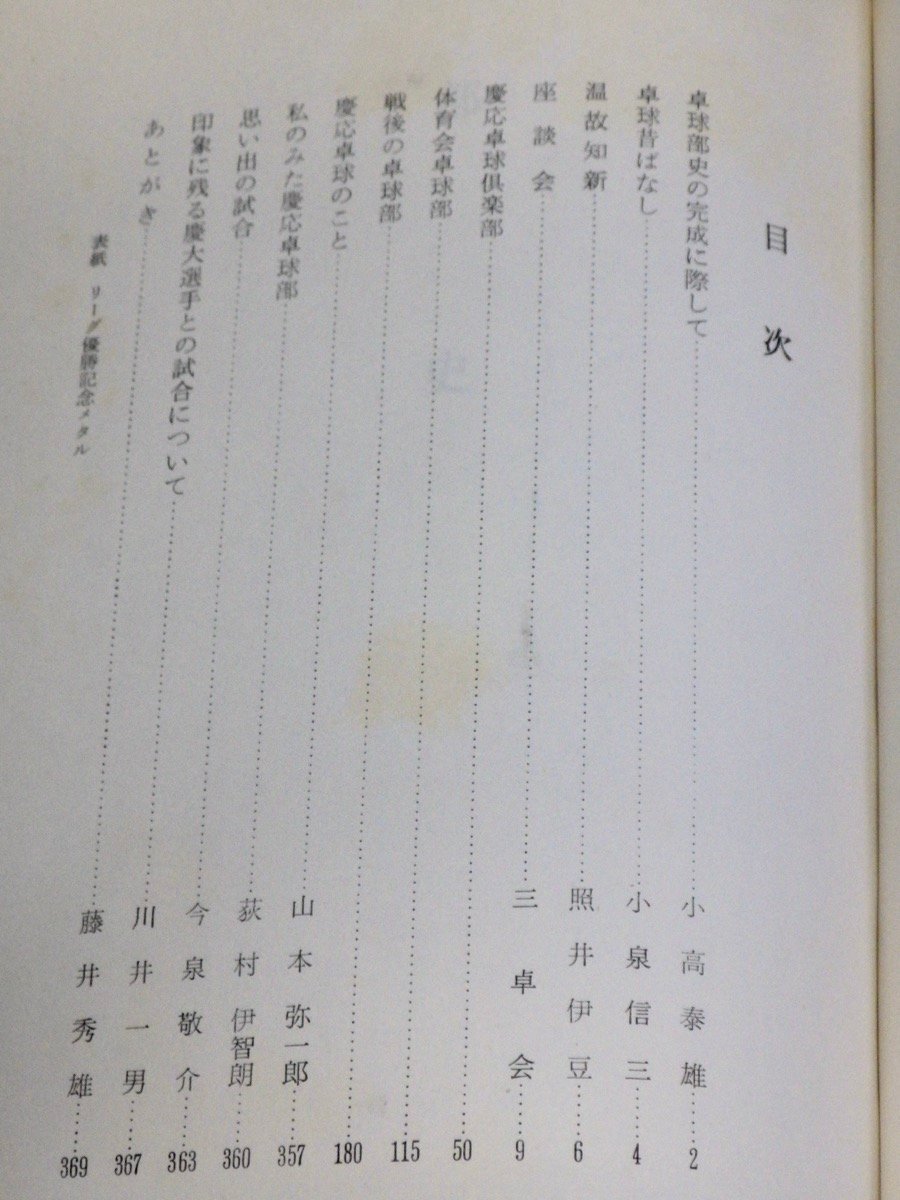 目次
卓球部史の完成に際して……小高泰雄……2
卓球昔ばなし……小泉信三……4
温故知新……照井伊豆……6
座談会……三卓会……9
慶応卓球倶楽部……50
体育会卓球部……115
戦後の卓球部……180
慶応卓球のこと……山本弥一郎……357
私のみた慶応卓球部……荻村伊智朗……360
思い出の試合……今泉敬介……363
印象に残る慶大選手との試合について……川井一男……367
あとがき……藤井秀雄……369
表紙 リーグ優勝記念メタル